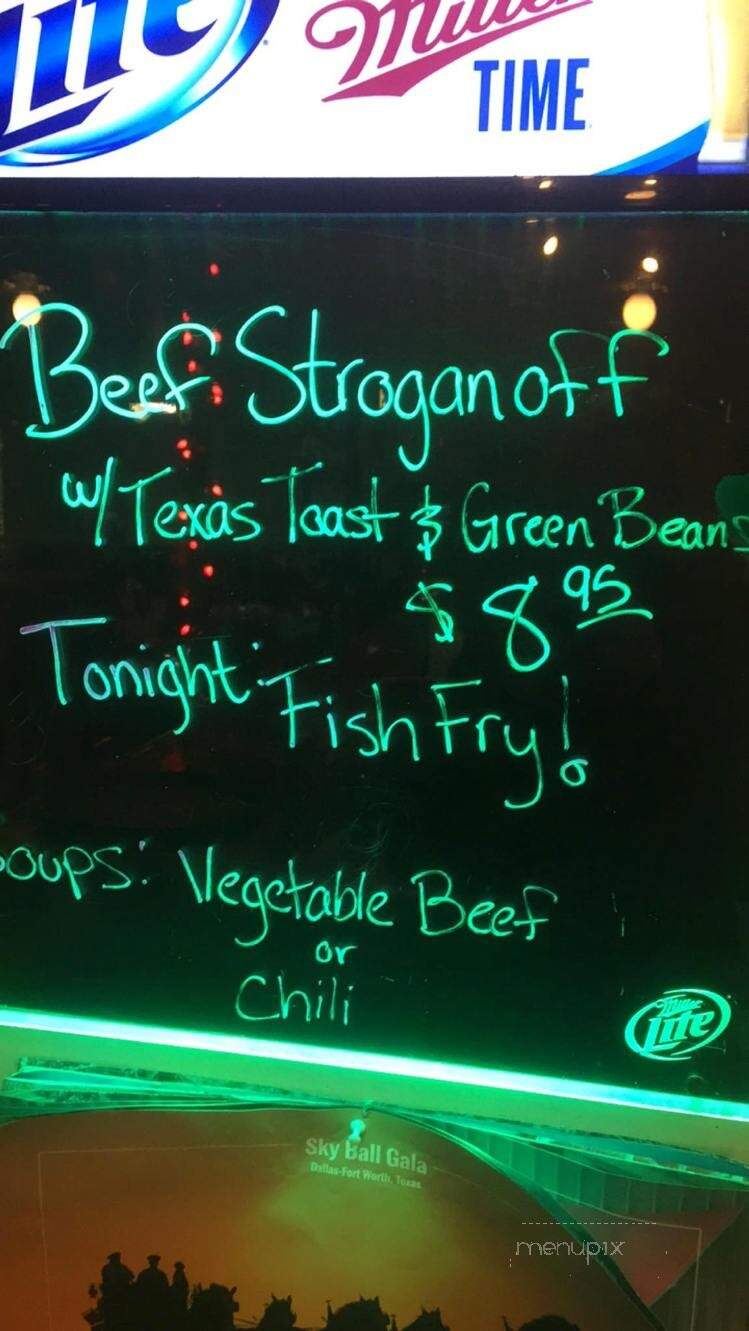 Lite
Miller
TIME
Beef Stroganoff
w/ Texas Toast & Green Beans
$8.95
Tonight:
Fish Fry!
oups: Vegetable Beef
or
Chili
Miller
Lite
Sky Ball Gala
Dallas-Fort Worth, Texas
menupix